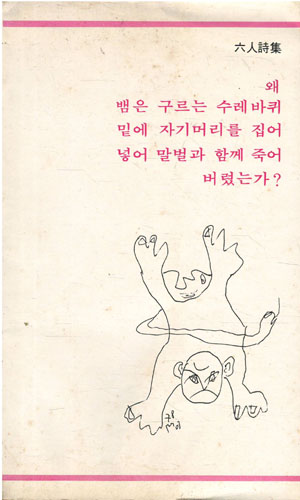 六人詩集
왜
뱀은 구르는 수레바퀴
밑에 자기머리를 집어
넣어 말벌과 함께 죽어
버렸는가?